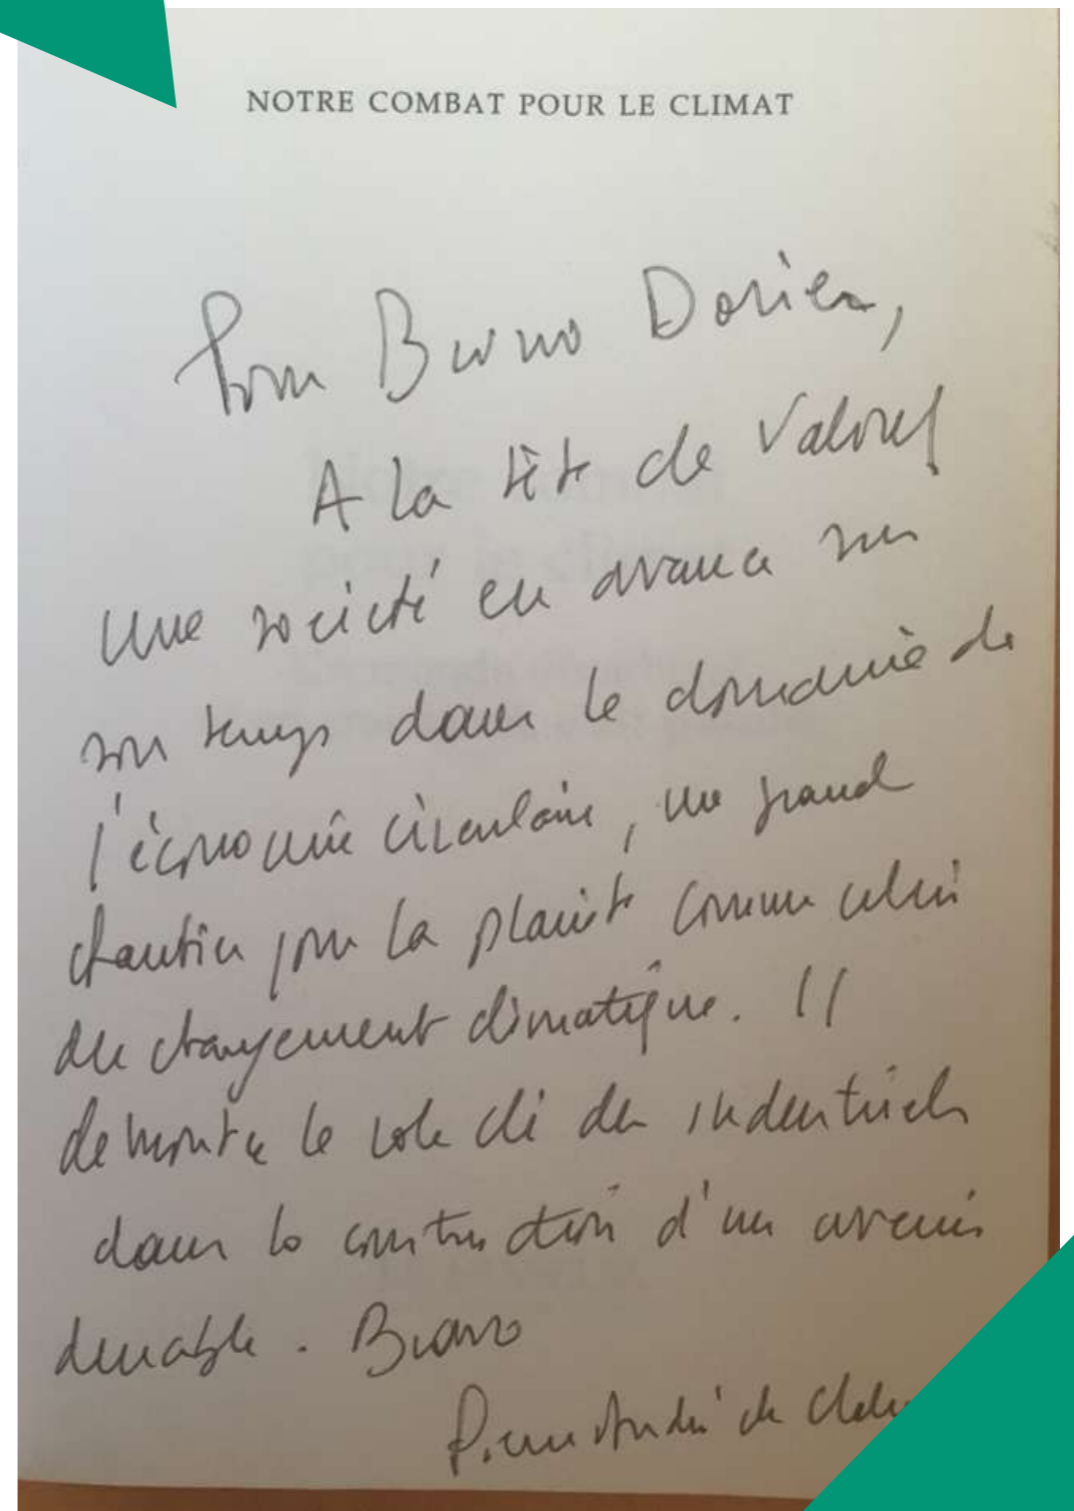 NOTRE COMBAT POUR LE CLIMAT
Pour Bruno Dorier,
A la tête de Valorel
une société en avance sur
son temps dans le domaine de
l'économie circulaire, un grand
chantier pour la planète comme celui
du changement climatique. Il
démontre le role clé des industriels
dans la construction d'un avenir
durable. Bravo
Pierre André de